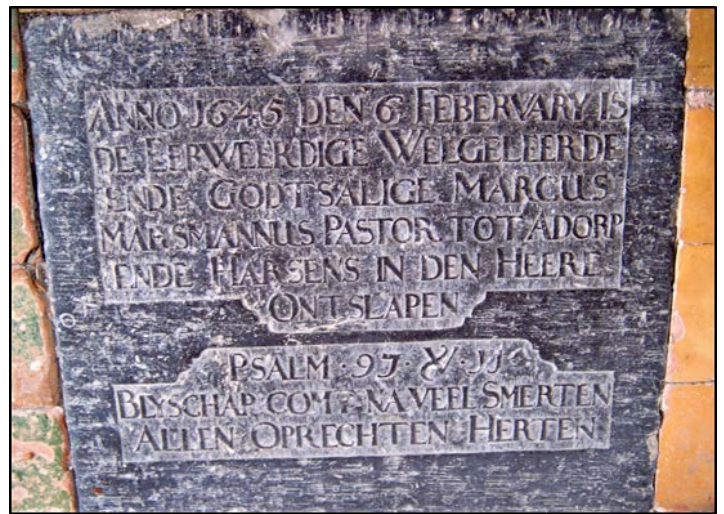 ANNO 1645 DEN 6 FEBERVARY IS
DE EERWEERDIGE WELGELEERDE
ENDE GODTSALIGE MARCUS
MARSMANNUS PASTOR TOT ADORP
ENDE HARSENS IN DEN HEERE
ONTSLAPEN
PSALM · 97 · V · 11
BLYSCHAP COMT NA VEEL SMERTEN
ALLEN OPRECHTEN HERTEN